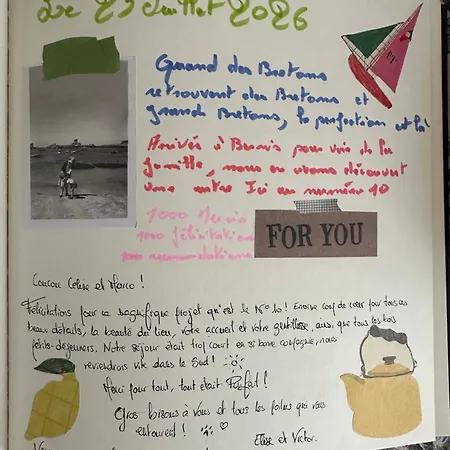 Le 23 Juillet 2026
Quand des Bretons
retrouvent des Bretons et
grands Bretons, la perfection est là
Arrivés à pour voir de la
famille, nous en avons découvert
une autre Ici au numéro 10
1000 Mercis
1000 félicitations
1000 recommandations
FOR YOU
Coucou Céline et Marco !
Félicitations pour ce magnifique projet qu'est le N°10 ! Encore coup de cœur pour tous ces
beaux détails, la beauté du lieu, votre accueil et votre gentillesse, ainsi que tous les bons
petits-déjeuners. Notre séjour était trop court en si bonne compagnie, nous
reviendrons vite dans le Sud !
Merci pour tout, tout était Parfait !
Gros bisous à vous et tous les poilus qui vous
entourent !
Elise et Victor.